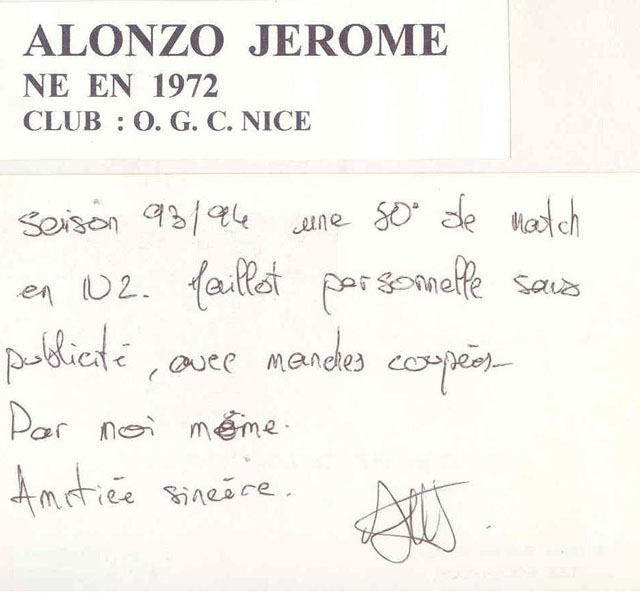 ALONZO JEROME
NE EN 1972
CLUB : O. G. C. NICE
Seison 93/94 une 80° de match
en N2. Maillot personnelle sans
publicité, avec manches coupées
Par moi même.
Amitiée sincère.